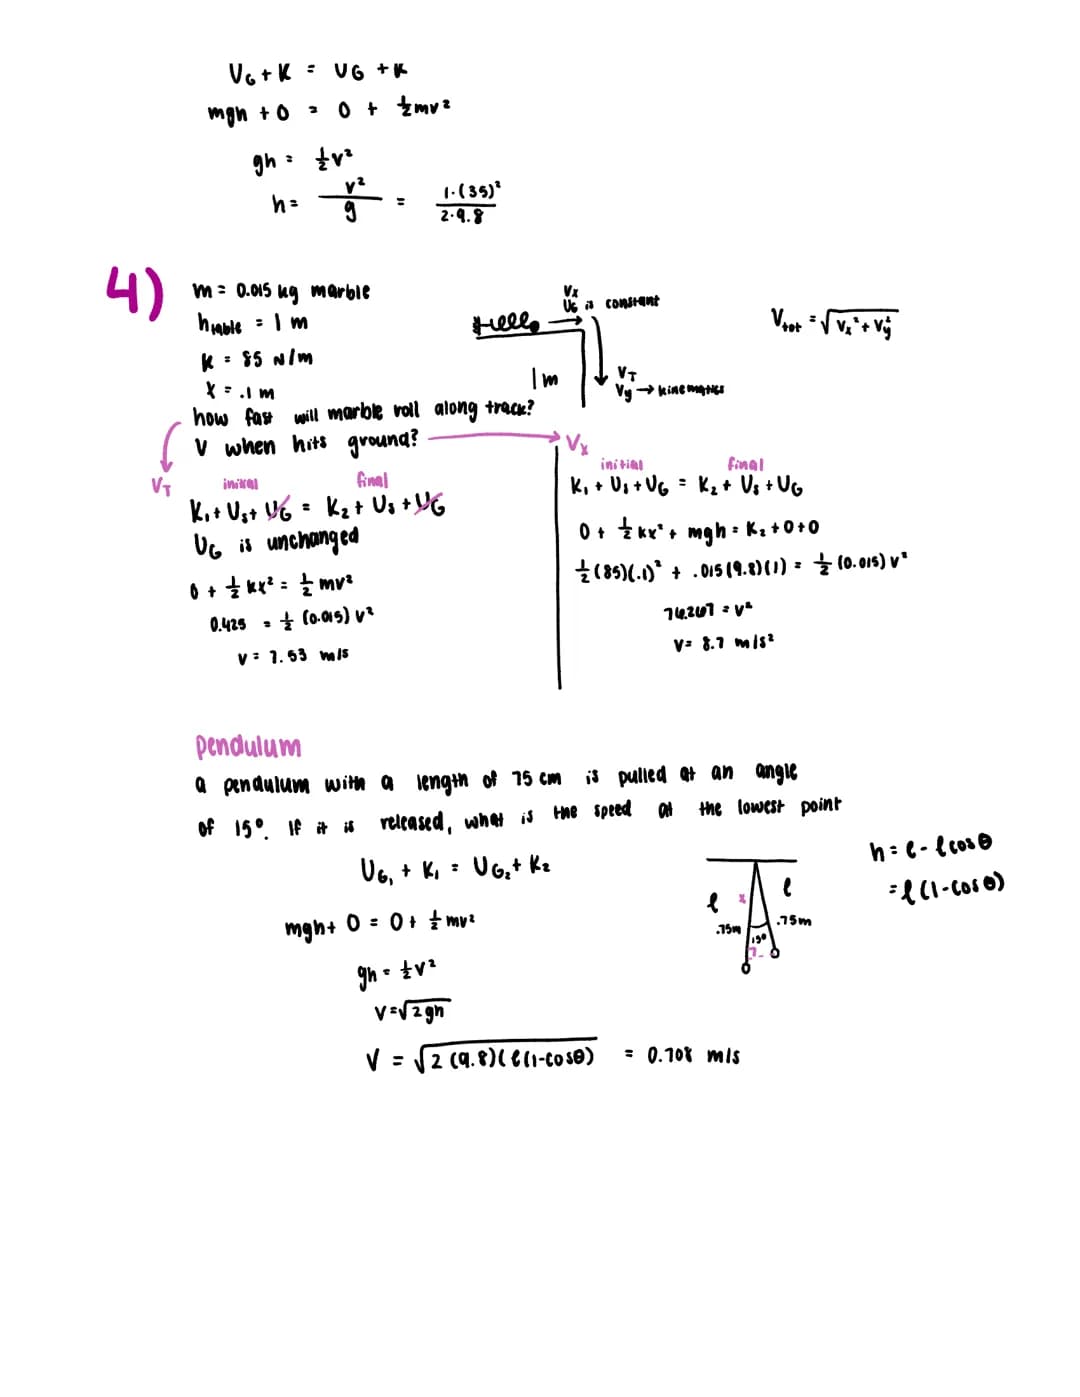 U_G + K = UG + K
mgh + 0 = 0 + ½mv²
gh = ½v²
h = v²/g = 1·(35)²/2·9.8
4)
m = 0.015 kg marble
h_table = 1 m
K = 85 N/m
X = .1 m
how fast will marble roll along track?
V when hits ground?
Vx
UG is constant
1m
V_T
Vy → kinematics
V_tot = √Vx² + Vy²
V_T
initial final
K₁ + Us + UG = K₂ + Us + UG
UG is unchanged
0 + ½ kx² = ½ mv²
0.425 = ½ (0.015) v²
v = 7.53 m/s
Vx
initial final
K₁ + Us + UG = K₂ + Us + UG
0 + ½ kx² + mgh = K₂ + 0 + 0
½ (85)(.1)² + .015 (9.8)(1) = ½ (0.015) v²
76.267 = v²
v = 8.7 m/s²
pendulum
a pendulum with a length of 75 cm is pulled at an angle
of 15°. If it is released, what is the speed at the lowest point
U_G₁ + K₁ = U_G₂ + K₂
mgh + 0 = 0 + ½ mv²
gh = ½v²
v = √2gh
V = √2 (9.8)(ℓ(1-cosθ) = 0.708 m/s
ℓ x ℓ
.75m .75m
15°
h = ℓ - ℓcosθ
= ℓ (1-cosθ)